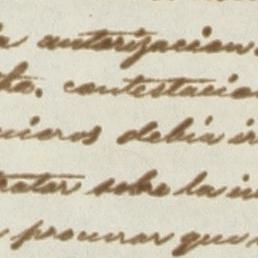 la autorizacion.
cho. contestacion
nieros debia ir
tratar sobre la in
procurar que